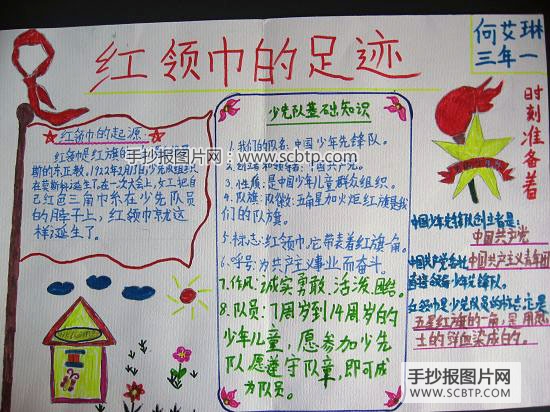 红领巾的足迹
何艾琳
三年一
时刻准备着
红领巾的起源:
斯的东正教,1922年2月1日少先队组织
在莫斯科诞生了,在一次大会上,女工把自己
红色三角巾系在少先队员
的脖子上,红领巾就这
样诞生了。
少先队基础知识
1.我们的队名:中国少年先锋队。
3.性质:是中国少年儿童群众组织。
4.队旗、队徽:五角星加火炬红旗是我
们的队旗。
5.标志:红领巾,它带表着红旗一角。
6.呼号:为共产主义事业而奋斗。
7.作风:诚实勇敢、活泼、
8.队员:7周岁到14周岁的
少年儿童,愿参加少先
队愿遵守队章,即可成
为队员。
中国少年先锋队创立者是:
中国共产党
中国共产党委托中国共产主义青年团
直接领导少年先锋队。
红领巾是少先队员的标志,它是
五星红旗的一角,是用烈
士的鲜血染成的。
手抄报图片网
www.scbtp.com
手抄报图片网
WWW.SCBTP.COM